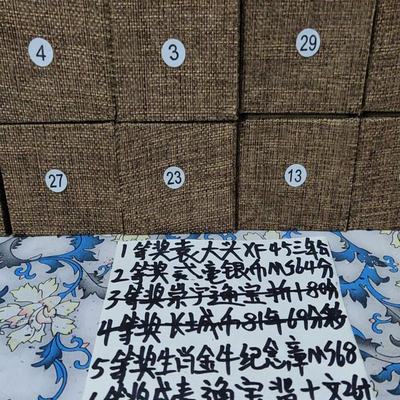 4
3
29
27
23
13
1等奖袁大头XF45三年
2等奖 毫银币MS64分
3等奖崇宁通宝折十80分
4等奖长城币81年69分
5等奖生肖金牛纪念章MS68